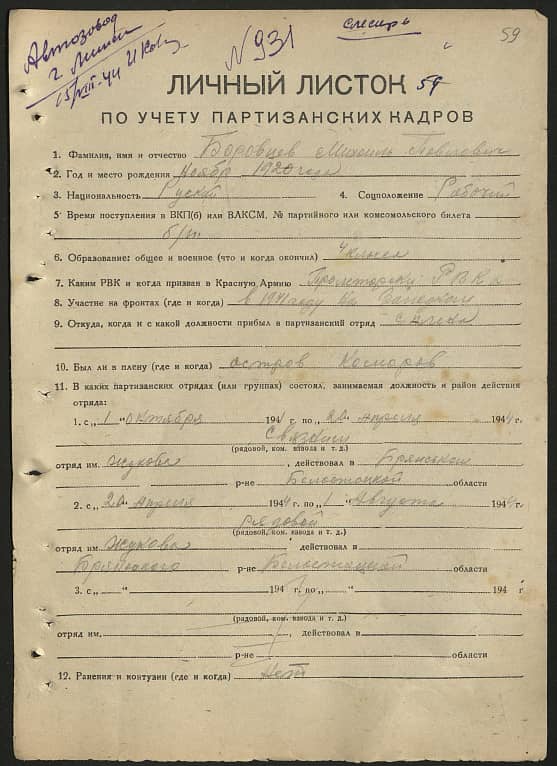 слесарь
59
Автозавод
г. Минск
15/VIII-44
N 931
ЛИЧНЫЙ ЛИСТОК 59
ПО УЧЕТУ ПАРТИЗАНСКИХ КАДРОВ
1. Фамилия, имя и отчество Боровцев Михаил Павлович
2. Год и место рождения Ноябр 1920 года
3. Национальность Руский 4. Соцположение Рабочий
5. Время поступления в ВКП(б) или ВЛКСМ, № партийного или комсомольского билета
б/п
6. Образование: общее и военное (что и когда окончил) 4 класса
7. Каким РВК и когда призван в Красную Армию РВКа
8. Участие на фронтах (где и когда) в 1941 году на Западном
9. Откуда, когда и с какой должности прибыл в партизанский отряд
10. Был ли в плену (где и когда) остров Комаров
11. В каких партизанских отрядах (или группах) состоял, занимаемая должность и район действия
отряда:
1. с „1" Октября 194 г. по „20 Апреля 1944 г.
Связным
(рядовой, ком. взвода и т. д.)
отряд им. Жукова, действовал в Брянском
р-не Белостоцкой области
2. с „20 Апреля 1944 г. по „1" Августа 1944 г.
Рядовой
(рядовой, ком. взвода и т. д.)
отряд им. Жукова, действовал в
Брянского р-не Белостоцкой области
3. с „ " 194 г. по „ " 194 г
(рядовой, ком. взвода и т. д.)
отряд им. , действовал в
р-не области
12. Ранения и контузии (где и когда) Нет